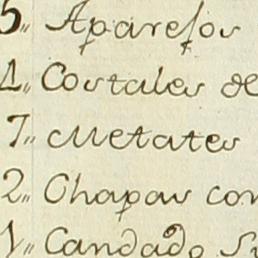 5,, Aparejos
1,, Costales de
7,, Metates
2,, Chapas con
1,, Candado